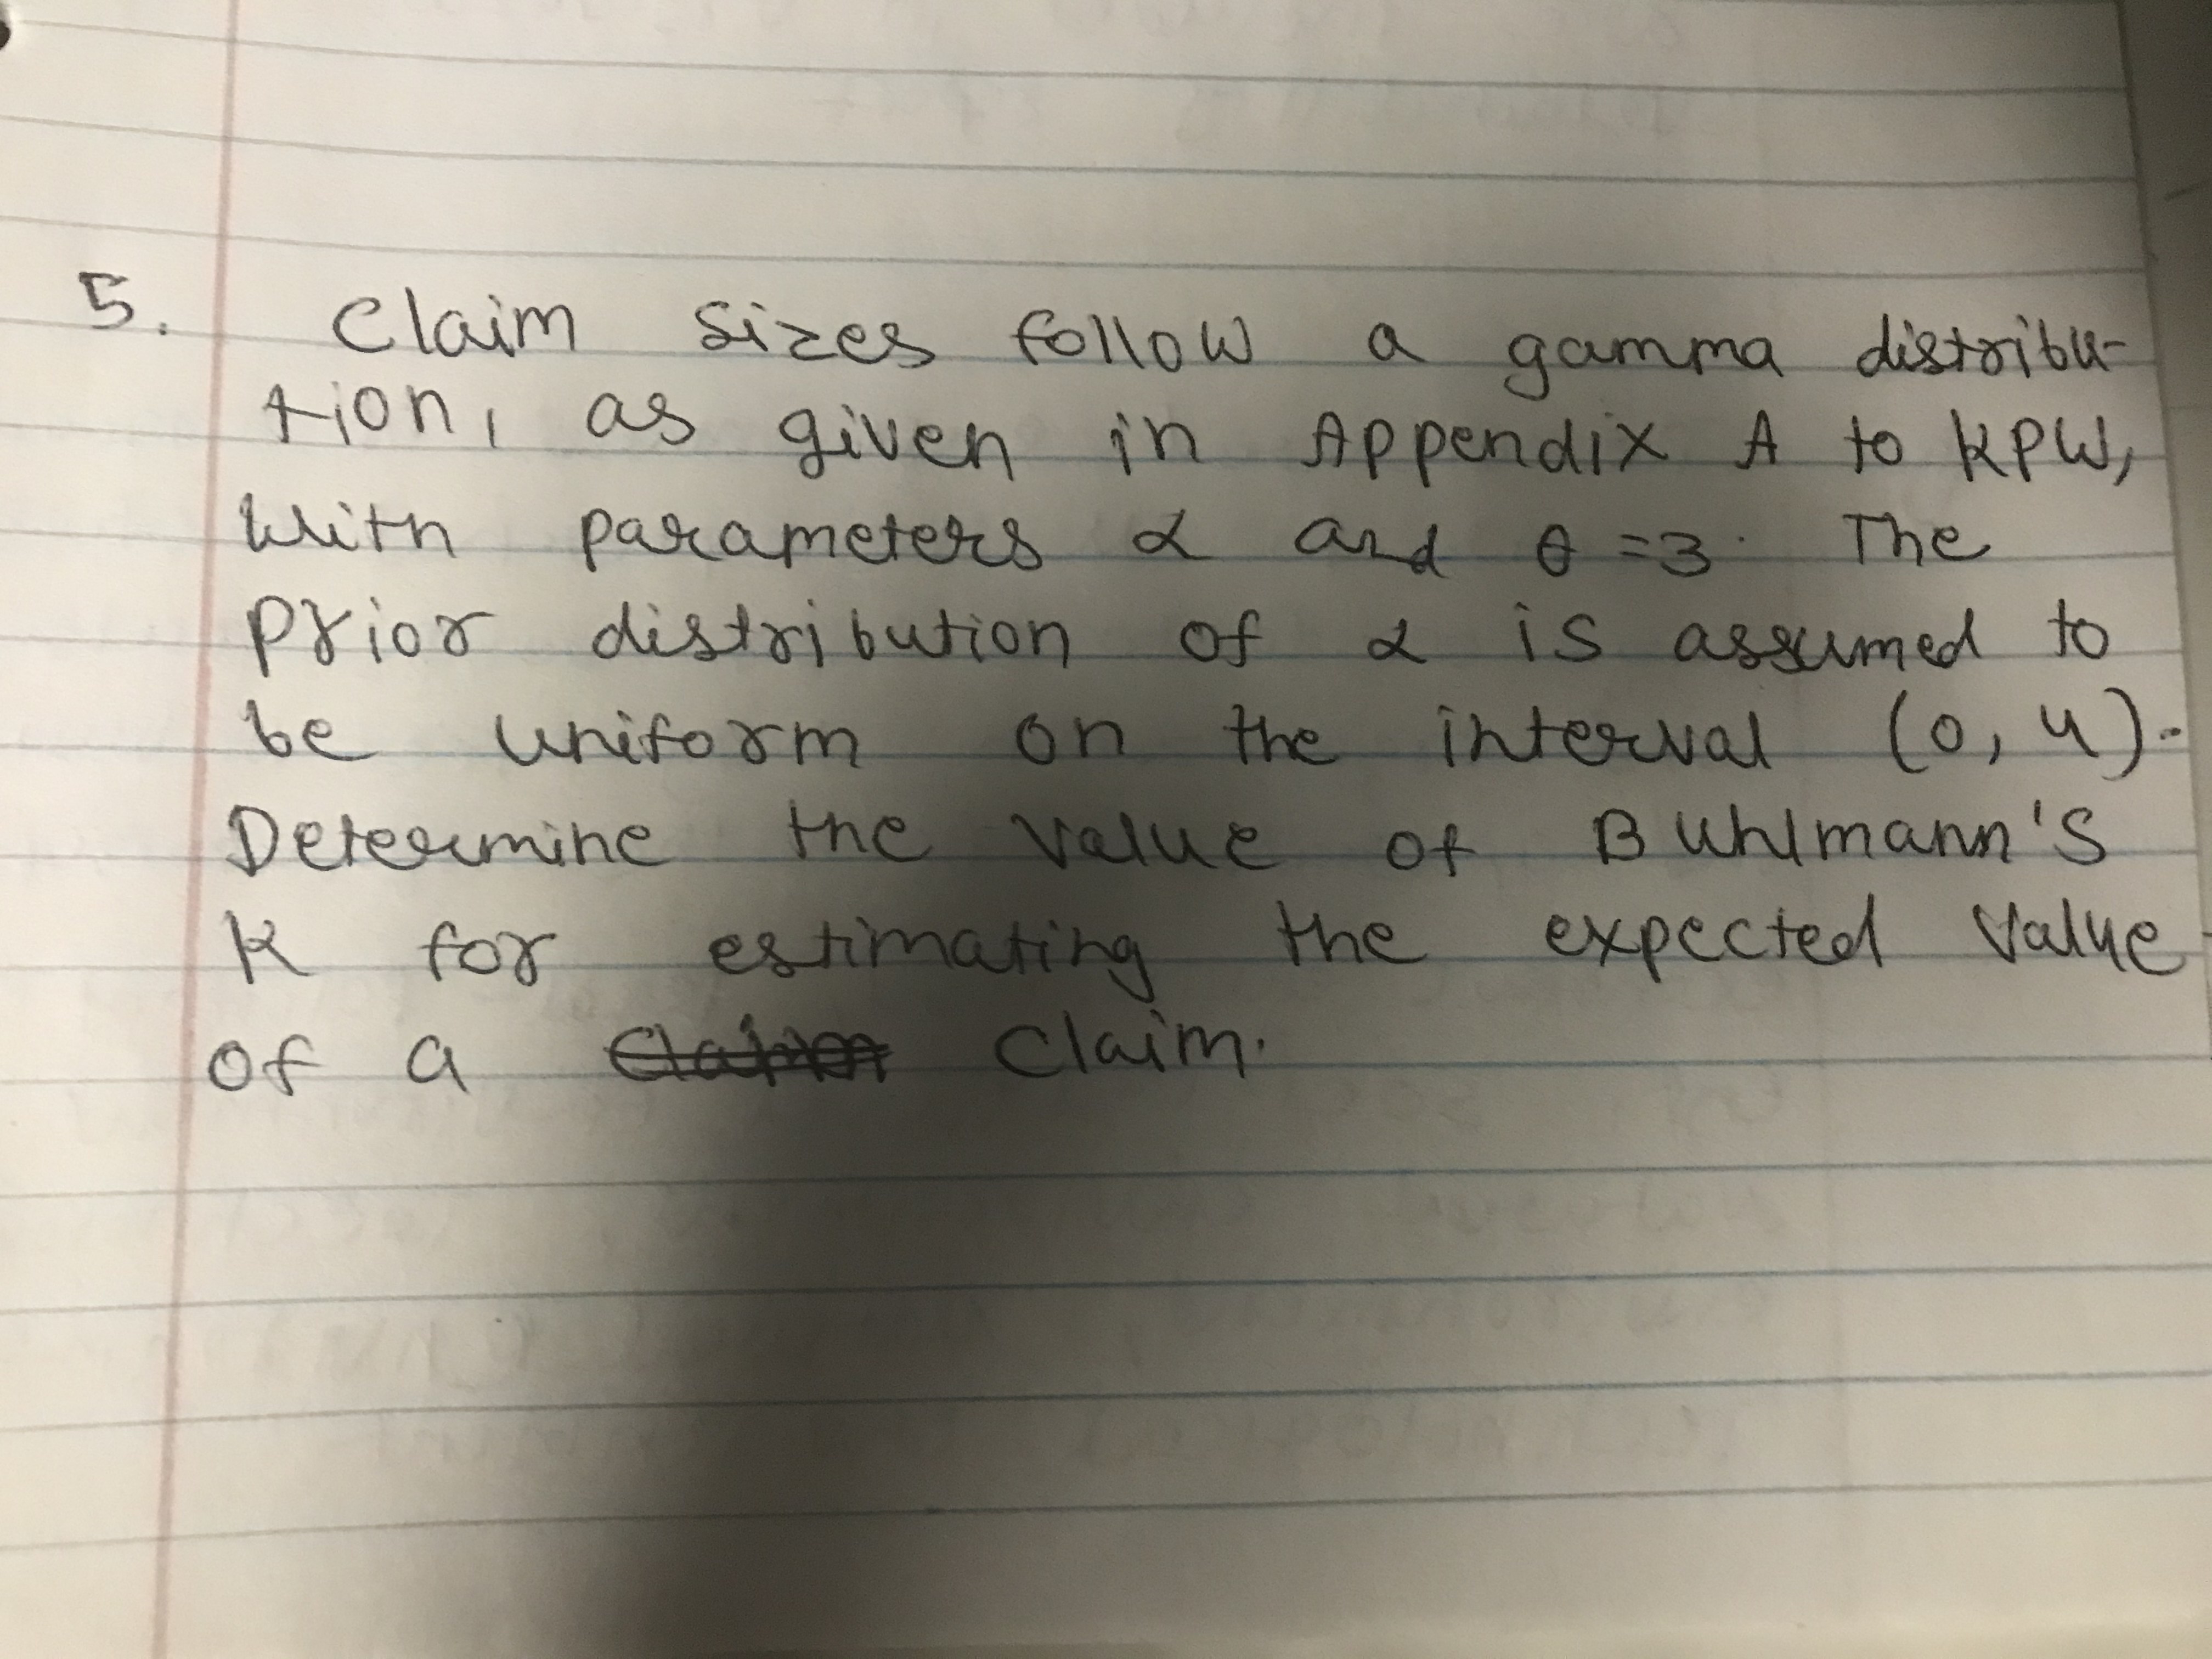 5. Claim sizes follow a gamma distribu-
tion, as given in Appendix A to KPW,
with parameters α and θ = 3. The
prior distribution of α is assumed to
be uniform on the interval (0, 4).
Determine the value of Buhlmann's
K for estimating the expected value
of a claim.